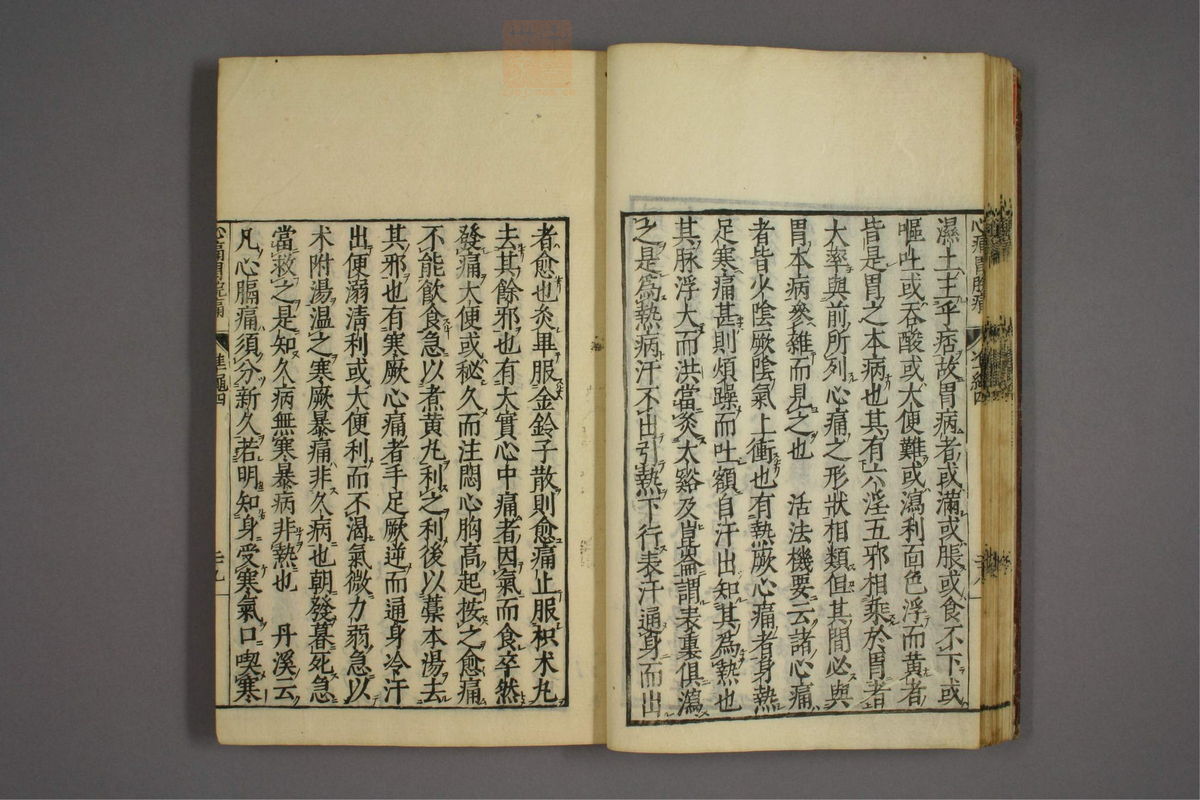 濕土王乎痞故胃病者或滿或脹或食不下或
嘔吐或吞酸或大便難或瀉利面色浮而黃者
皆是胃之本病也其有六淫五邪相乘於胃者
大率與前所列心痛之形狀相類但其間必與
胃本病參雜而見之也　活法機要云諸心痛
者皆少陰厥陰氣上衝也有熱厥心痛者身熱
足寒痛甚則煩躁而吐額自汗出知其為熱也
其脉浮大而洪當灸太谿及崑崙謂表裏俱瀉
之是為熱病汗不出引熱下行表汗通身而出
者愈也灸畢服金鈴子散則愈痛止服枳朮丸
去其餘邪也有大實心中痛者因氣而食卒然
發痛大便或秘久而注悶心胸高起按之愈痛
不能飲食急以煮黃丸利之利後以藁本湯去
其邪也有寒厥心痛者手足厥逆而通身冷汗
出便溺清利或大便利而不渴氣微力弱急以
朮附湯溫之寒厥暴痛非久病也朝發暮死急
當救之是知久病無寒暴病非熱也　丹溪云
凡心膈痛須分新久若明知身受寒氣口喫寒
心痛胃脘痛　準繩四